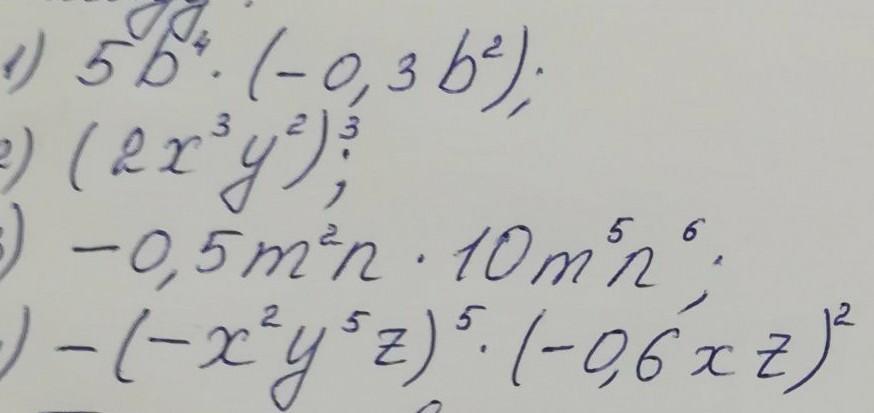 1) 5b⁴ · (-0,3b²);
2) (2x³y²)³;
) -0,5m²n · 10m⁵n⁶;
) -(-x²y⁵z)⁵ · (-0,6xz)²